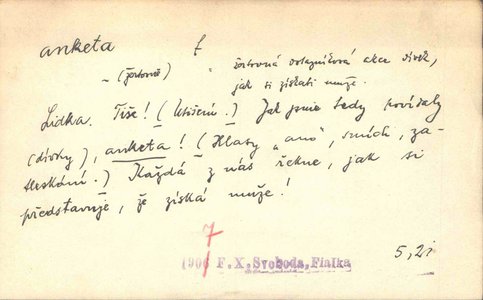 anketa f
~ (žertovně) " žertovná dotazníková akce dívek,
jak si získati muže.
Lidka. Tiše! (Utišení.) Jak jsme tedy povídaly
(dívky), anketa! (Hlasy „ano", smích, za-
tleskání.) Každá z nás řekne, jak si
představuje, že získá muže!
7
1906 F.X.Svoboda, Fialka
5, 21